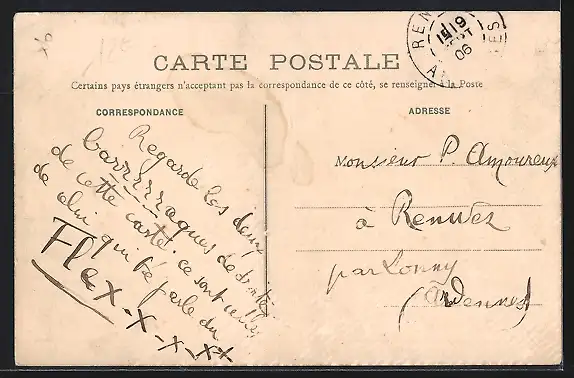 12€
CARTE POSTALE
Certains pays étrangers n'acceptant pas la correspondance de ce côté, se renseigner à la Poste
CORRESPONDANCE
ADRESSE
REN
19
06
Regarde les deux
barrrrraques de droite
de cette carte. ce sont celles
de celui qui te parle du
Flax-x-x-xx
Monsieur P. Amoureux
à Renwez
par Lonny
(Ardennes)